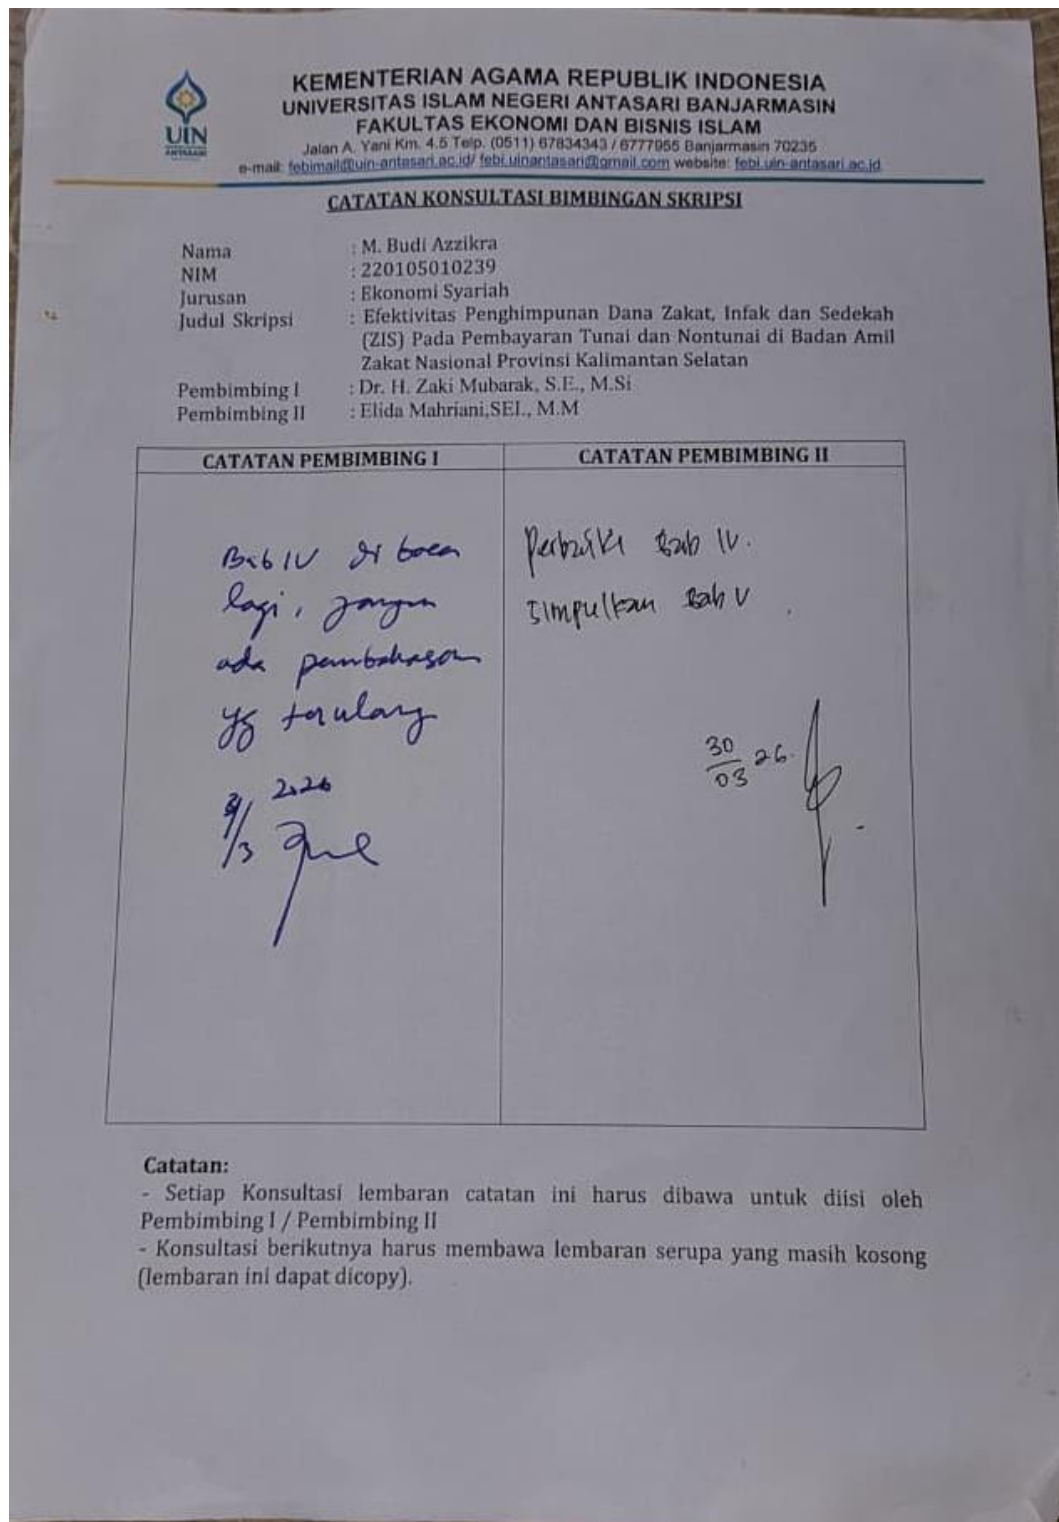 KEMENTERIAN AGAMA REPUBLIK INDONESIA
UNIVERSITAS ISLAM NEGERI ANTASARI BANJARMASIN
FAKULTAS EKONOMI DAN BISNIS ISLAM
Jalan A. Yani Km. 4.5 Telp. (0511) 67834343 / 6777955 Banjarmasin 70235
e-mail: febimail@uin-antasari.ac.id/ febi.uinantasari@gmail.com website: febi.uin-antasari.ac.id
UIN
ANTASARI
CATATAN KONSULTASI BIMBINGAN SKRIPSI
Nama : M. Budi Azzikra
NIM : 220105010239
Jurusan : Ekonomi Syariah
Judul Skripsi : Efektivitas Penghimpunan Dana Zakat, Infak dan Sedekah
(ZIS) Pada Pembayaran Tunai dan Nontunai di Badan Amil
Zakat Nasional Provinsi Kalimantan Selatan
Pembimbing I : Dr. H. Zaki Mubarak, S.E., M.Si
Pembimbing II : Elida Mahriani,SEI., M.M
CATATAN PEMBIMBING I
Bab IV di baca
lagi, jangan
ada pembahasan
yg terulang
/3 2026
CATATAN PEMBIMBING II
Perbaiki Bab IV.
Simpulkan Bab V.
30/03 26.
Catatan:
- Setiap Konsultasi lembaran catatan ini harus dibawa untuk diisi oleh
Pembimbing I / Pembimbing II
- Konsultasi berikutnya harus membawa lembaran serupa yang masih kosong
(lembaran ini dapat dicopy).